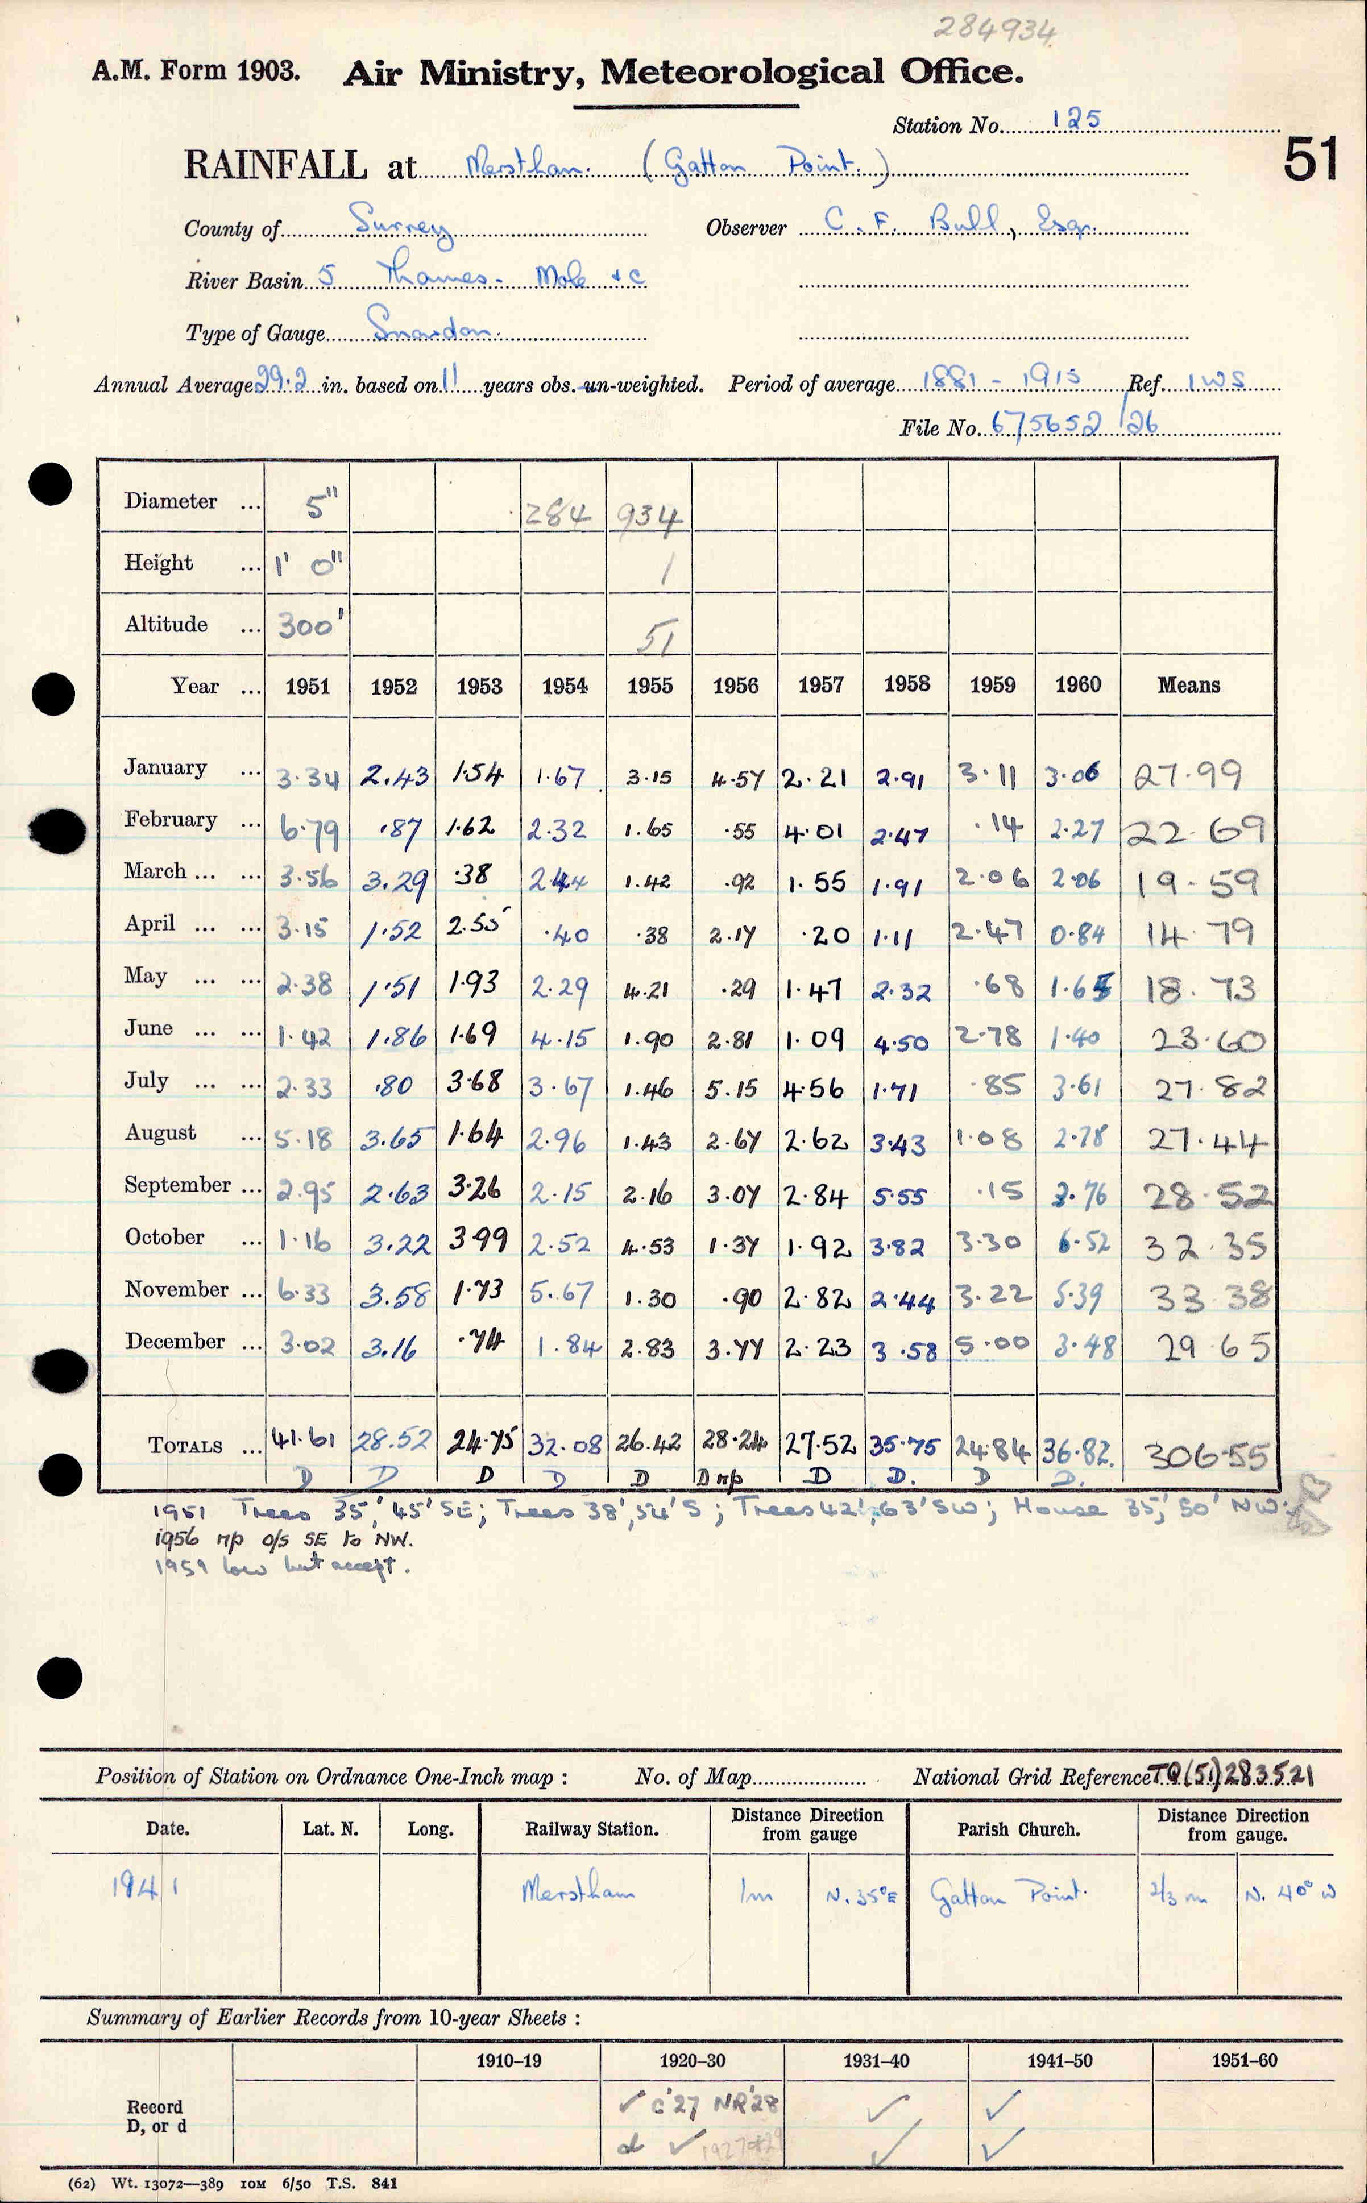 284934
A.M. Form 1903. Air Ministry, Meteorological Office.
Station No. 125
51
RAINFALL at Merstham. (Gatton Point.)
County of Surrey Observer C. F. Bull, Esqr.
River Basin 5 Thames - Mole &c
Type of Gauge Snowdon.
Annual Average 29.2 in. based on 11 years obs. un-weighted. Period of average 1881 - 1915 Ref. IWS
File No. 675652/26
Diameter ... 5" 284 934
Height ... 1' 0" 1
Altitude ... 300' 51
Year ... 1951 1952 1953 1954 1955 1956 1957 1958 1959 1960 Means
January ... 3.34 2.43 1.54 1.67 3.15 4.57 2.21 2.91 3.11 3.06 27.99
February ... 6.79 .87 1.62 2.32 1.65 .55 4.01 2.47 .14 2.27 22.69
March ... ... 3.56 3.29 .38 2.44 1.42 .92 1.55 1.91 2.06 2.06 19.59
April ... ... 3.15 1.52 2.55 .40 .38 2.17 .20 1.11 2.47 0.84 14.79
May ... ... 2.38 1.51 1.93 2.29 4.21 .29 1.47 2.32 .68 1.65 18.73
June ... ... 1.42 1.86 1.69 4.15 1.90 2.81 1.09 4.50 2.78 1.40 23.60
July ... ... 2.33 .80 3.68 3.67 1.46 5.15 4.56 1.71 .85 3.61 27.82
August ... 5.18 3.65 1.64 2.96 1.43 2.67 2.62 3.43 1.08 2.78 27.44
September ... 2.95 2.63 3.26 2.15 2.16 3.07 2.84 5.55 .15 3.76 28.52
October ... 1.16 3.22 3.99 2.52 4.53 1.37 1.92 3.82 3.30 6.52 32.35
November ... 6.33 3.58 1.73 5.67 1.30 .90 2.82 2.44 3.22 5.39 33.38
December ... 3.02 3.16 .74 1.84 2.83 3.77 2.23 3.58 5.00 3.48 29.65
TOTALS ... 41.61 28.52 24.75 32.08 26.42 28.24 27.52 35.75 24.84 36.82. 306.55
D D D D D D mp D D. D D.
1951 Trees 35', 45' SE; Trees 38', 54' S; Trees 42', 63' SW; House 35', 50' NW;
1956 mp o/s SE to NW.
1959 low but accept.
Position of Station on Ordnance One-Inch map : No. of Map National Grid Reference TQ(51)283521
Date. Lat. N. Long. Railway Station. Distance Direction from gauge Parish Church. Distance Direction from gauge.
1941 Merstham 1m N. 35° E Gatton Point. 2/3 m N. 40° W
Summary of Earlier Records from 10-year Sheets :
1910–19 1920–30 1931–40 1941–50 1951–60
Record ✓ C'27 NR'28 ✓ ✓
D, or d d ✓ ✓ ✓
(62) Wt. 13072—389 10M 6/50 T.S. 841